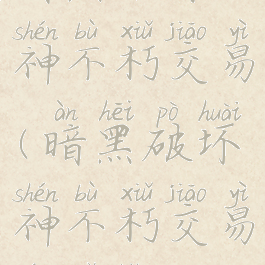 shén bù xiǔ jiāo yì
神不朽交易
àn hēi pò huài
(暗黑破坏
shén bù xiǔ jiāo yì
神不朽交易